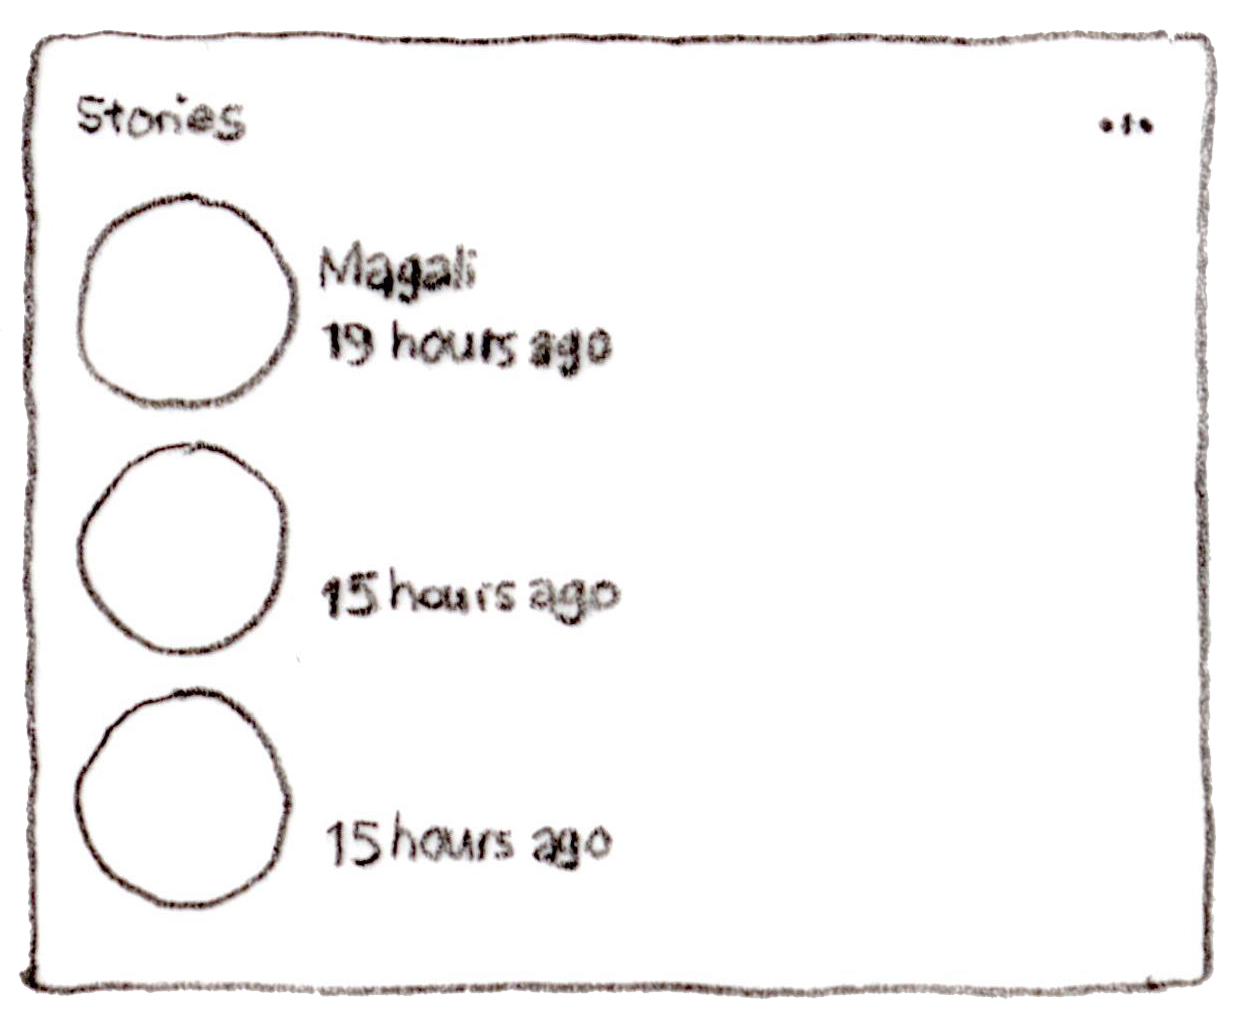 Stories
Magali
19 hours ago
15 hours ago
15 hours ago